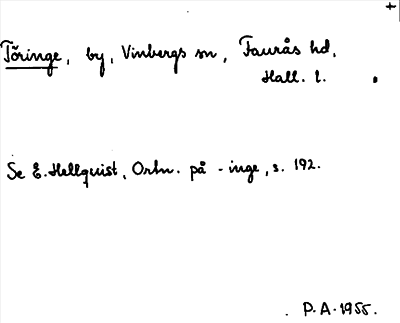 Töringe, by, Vinbergs sn, Faurås hd,
Hall. l.
Se E. Hellquist, Ortn. på -inge, s. 192.
P.A. 1955.